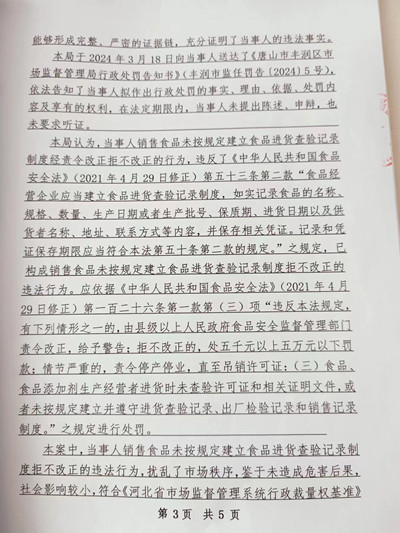 能够形成完整、严密的证据链，充分证明了当事人的违法事实。
本局于 2024 年 3 月 18 日向当事人送达了《唐山市丰润区市
场监督管理局行政处罚告知书》（丰润市监任罚告〔2024〕5 号），
依法告知了当事人拟作出行政处罚的事实、理由、依据、处罚内
容及享有的权利，在法定期限内，当事人未提出陈述、申辩，也
未要求听证。
本局认为，当事人销售食品未按规定建立食品进货查验记录
制度经责令改正拒不改正的行为，违反了《中华人民共和国食品
安全法》（2021 年 4 月 29 日修正）第五十三条第二款“食品经
营企业应当建立食品进货查验记录制度，如实记录食品的名称、
规格、数量、生产日期或者生产批号、保质期、进货日期以及供
货者名称、地址、联系方式等内容，并保存相关凭证。记录和凭
证保存期限应当符合本法第五十条第二款的规定。”之规定，已
构成销售食品未按规定建立食品进货查验记录制度拒不改正的
违法行为。应依据《中华人民共和国食品安全法》（2021 年 4 月
29 日修正）第一百二十六条第一款第（三）项“违反本法规定，
有下列情形之一的，由县级以上人民政府食品安全监督管理部门
责令改正，给予警告；拒不改正的，处五千元以上五万元以下罚
款；情节严重的，责令停产停业，直至吊销许可证：（三）食品、
食品添加剂生产经营者进货时未查验许可证和相关证明文件，或
者未按规定建立并遵守进货查验记录、出厂检验记录和销售记录
制度。”之规定进行处罚。
本案中，当事人销售食品未按规定建立食品进货查验记录制
度拒不改正的违法行为，扰乱了市场秩序，鉴于未造成危害后果，
社会影响较小，符合《河北省市场监督管理系统行政裁量权基准》
第 3 页 共 5 页